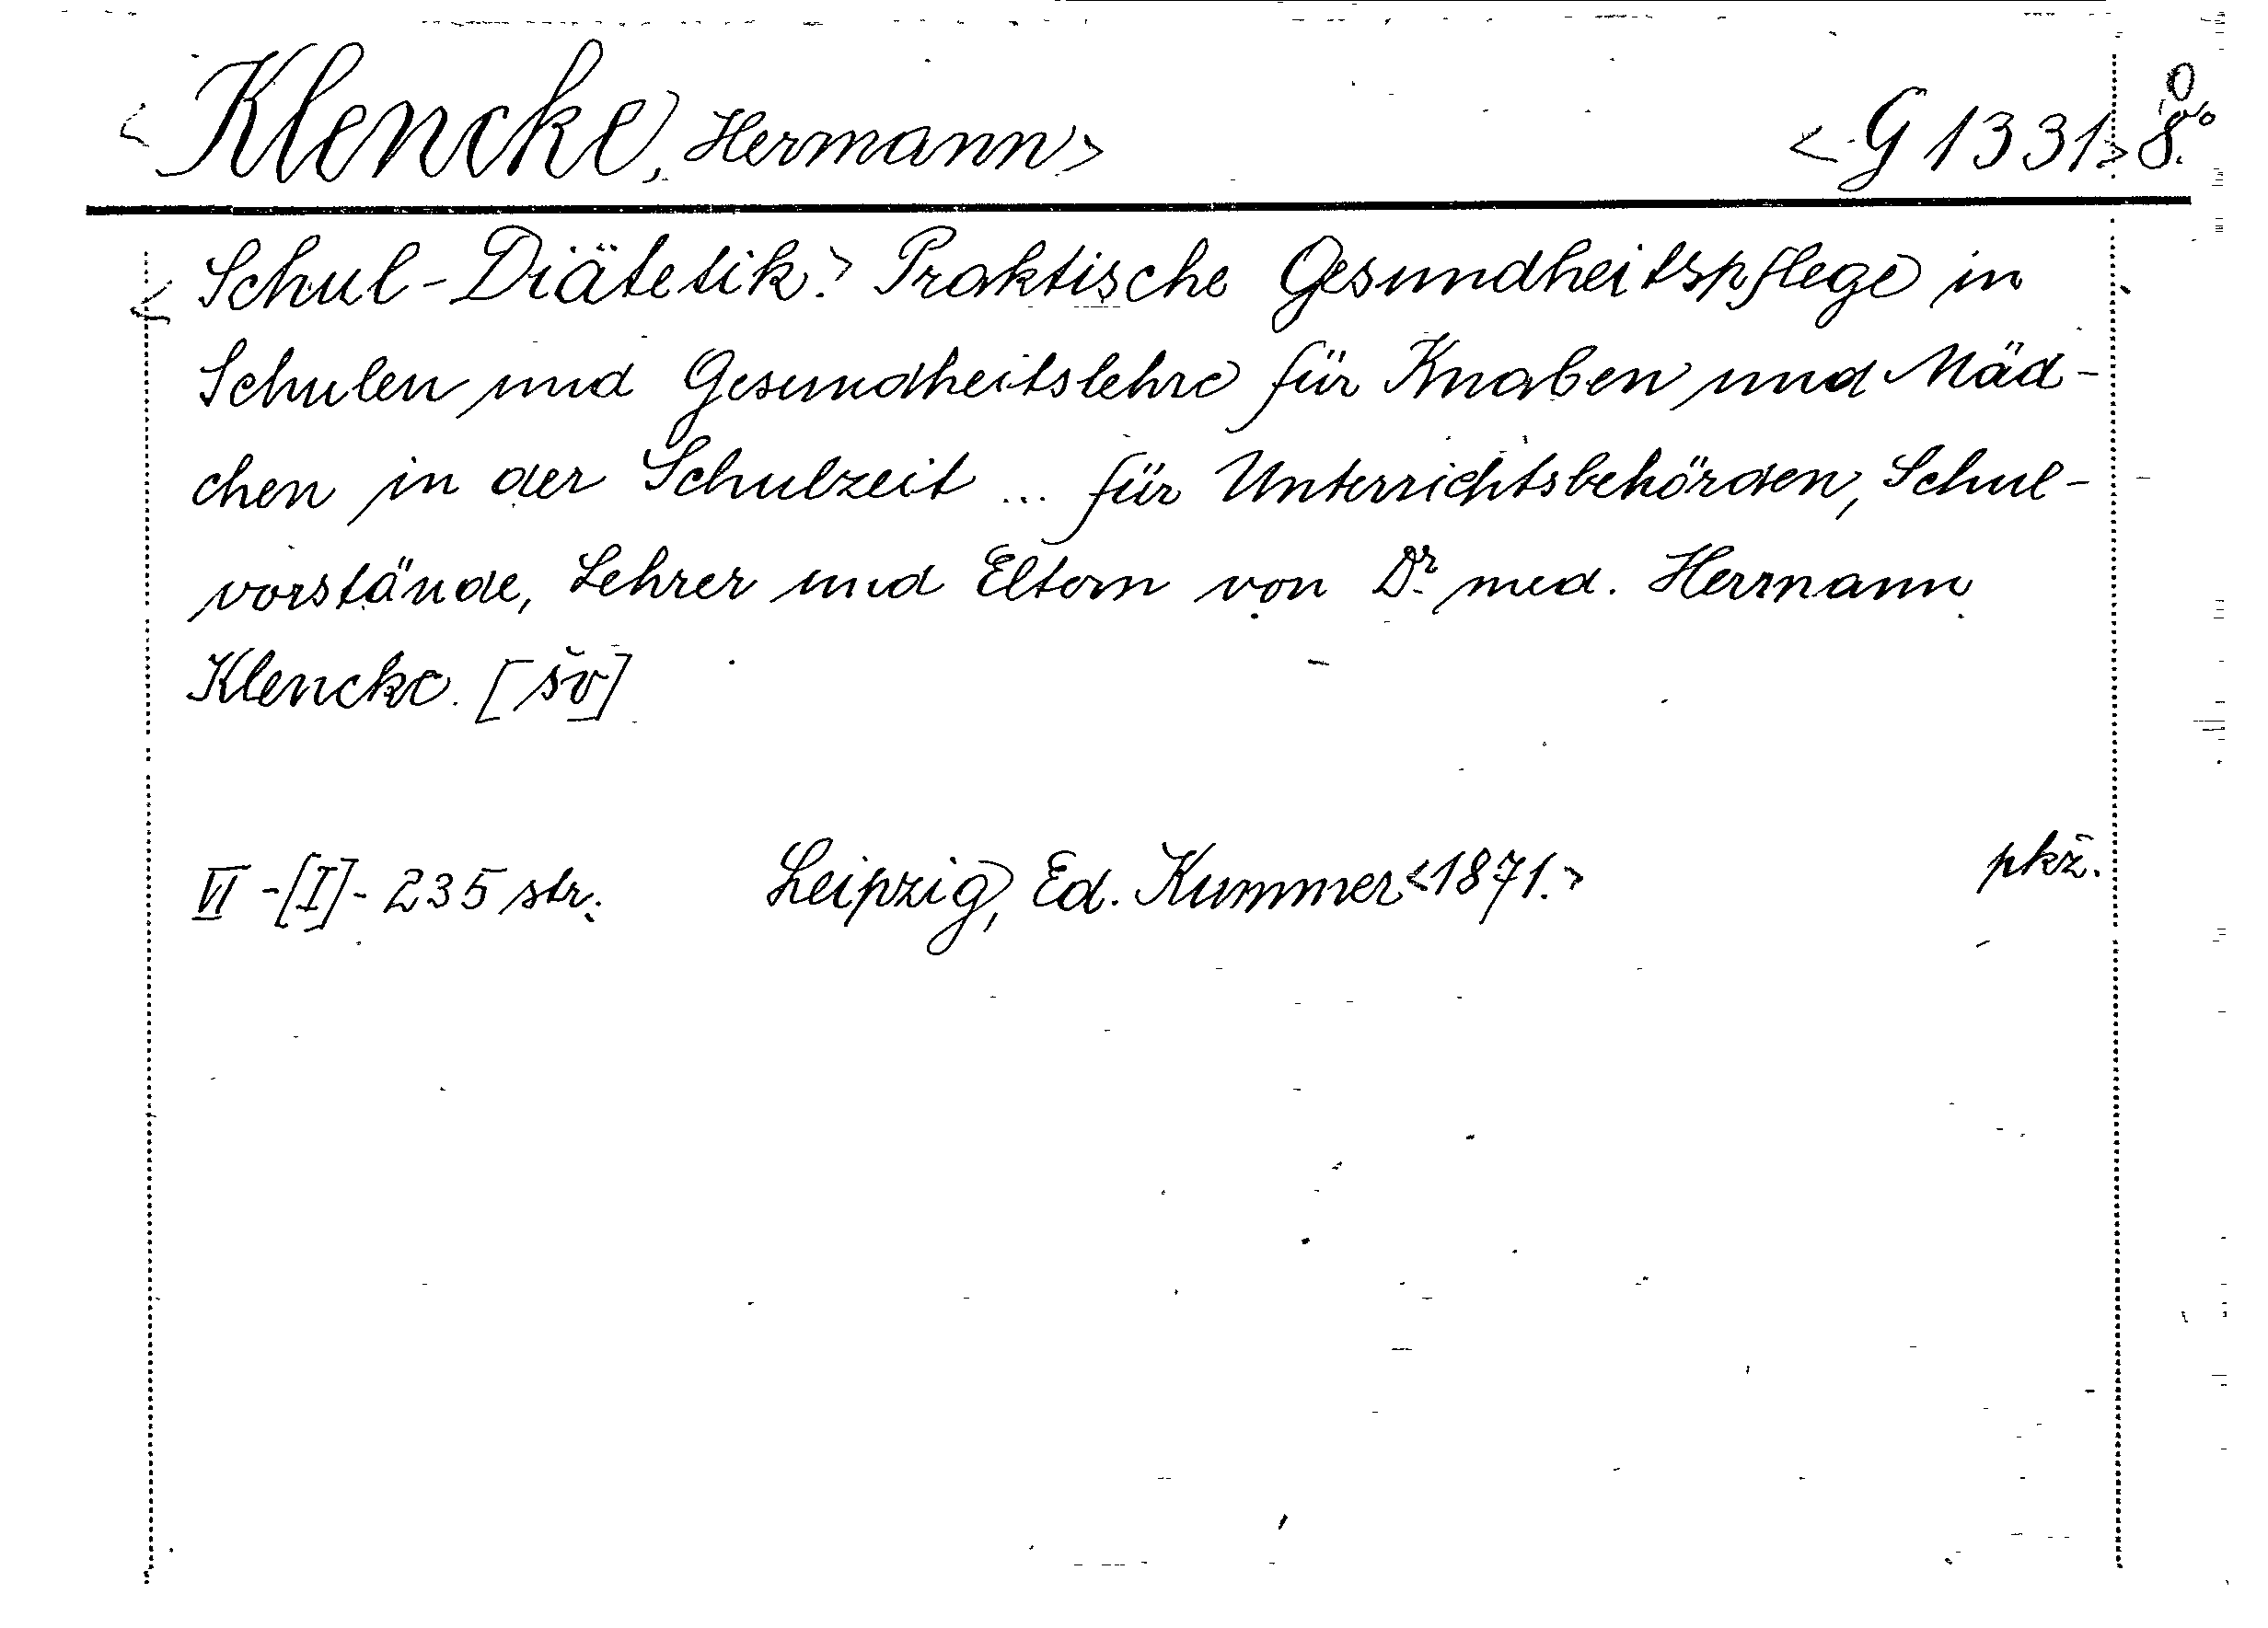 <Klencke, Hermann> <G 1331> 8°
<Schul-Diätetik.> Praktische Gesundheitspflege in
Schulen und Gesundheitslehre für Knaben und Mäd-
chen in der Schulzeit ... für Unterrichtsbehörden, Schul-
vorstände, Lehrer und Eltern von Dr. med. Hermann
Klencke. [šv]
VI-[I]-235 str. Leipzig, Ed. Kummer <1871.> pkž.